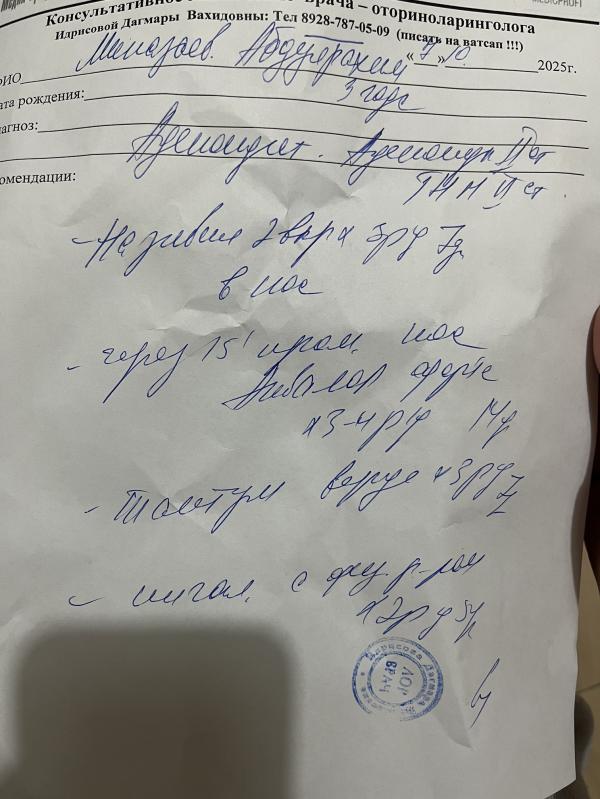 Консультативное врача – оториноларинголога
Идрисовой Дагмары Вахидовны: Тел 8928-787-05-09 (писать на ватсап !!!)
ФИО Абдулрахим «7» 10. 2025г.
дата рождения: 3 года
диагноз: Аденоидит. Аденоиды II ст
ГНМ II ст.
рекомендации:
- Називин 2 впр х 3р/д 7д.
в нос
- через 15' пром. нос
форте
х 3-4 р/д 14д
- Тантум верде х 3р/д 7д
- ингал. с физ. р-ром
х 2р/д 5д
Идрисова Дагмара
ЛОР
ВРАЧ